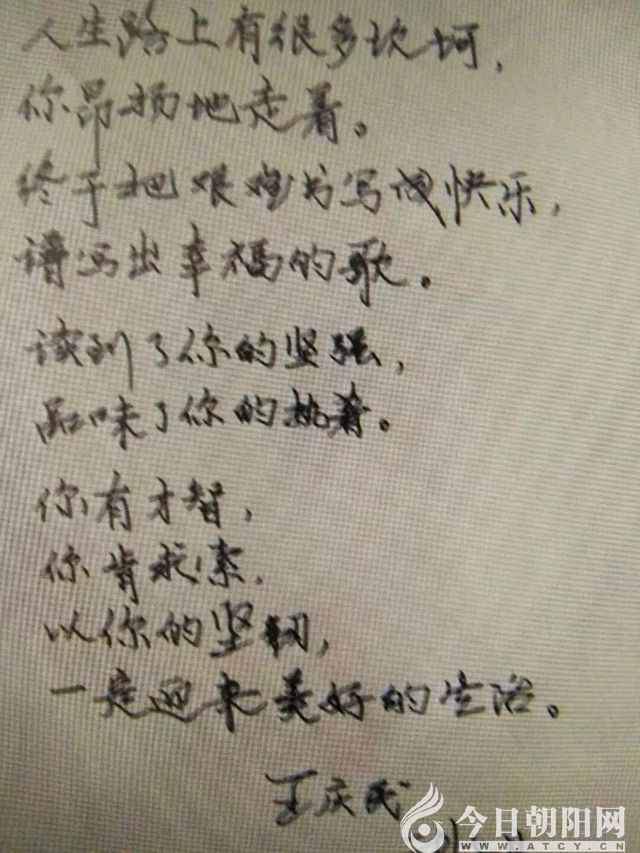 人生路上有很多坎坷，
你昂扬地走着。
终于把艰难书写成快乐，
谱写出幸福的歌。
读到了你的坚强，
品味了你的执着。
你有才智，
你肯求索，
以你的坚韧，
一定迎来美好的生活。
王庆民
今日朝阳网
WWW.ATCY.CN